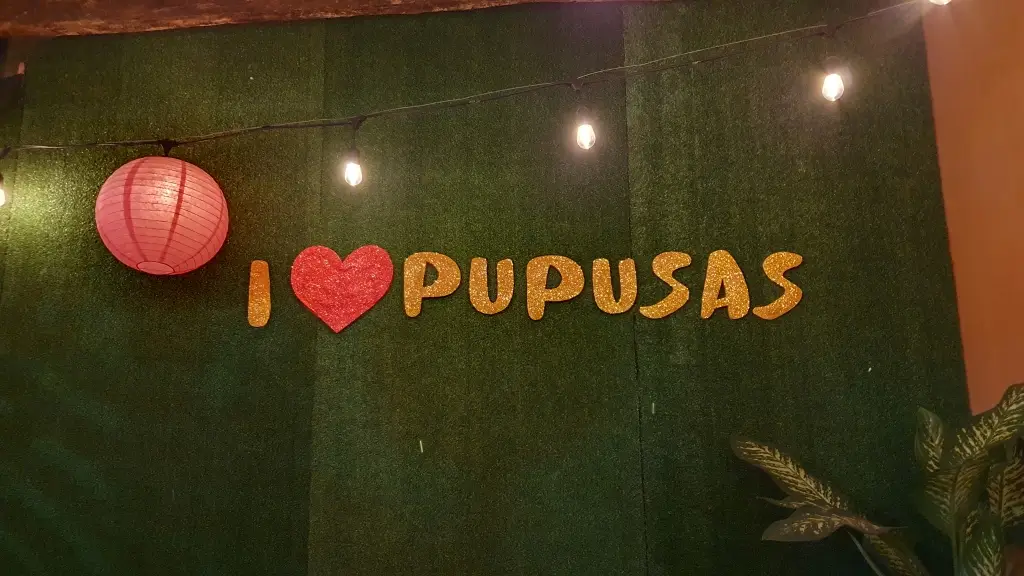 I ❤ PUPUSAS